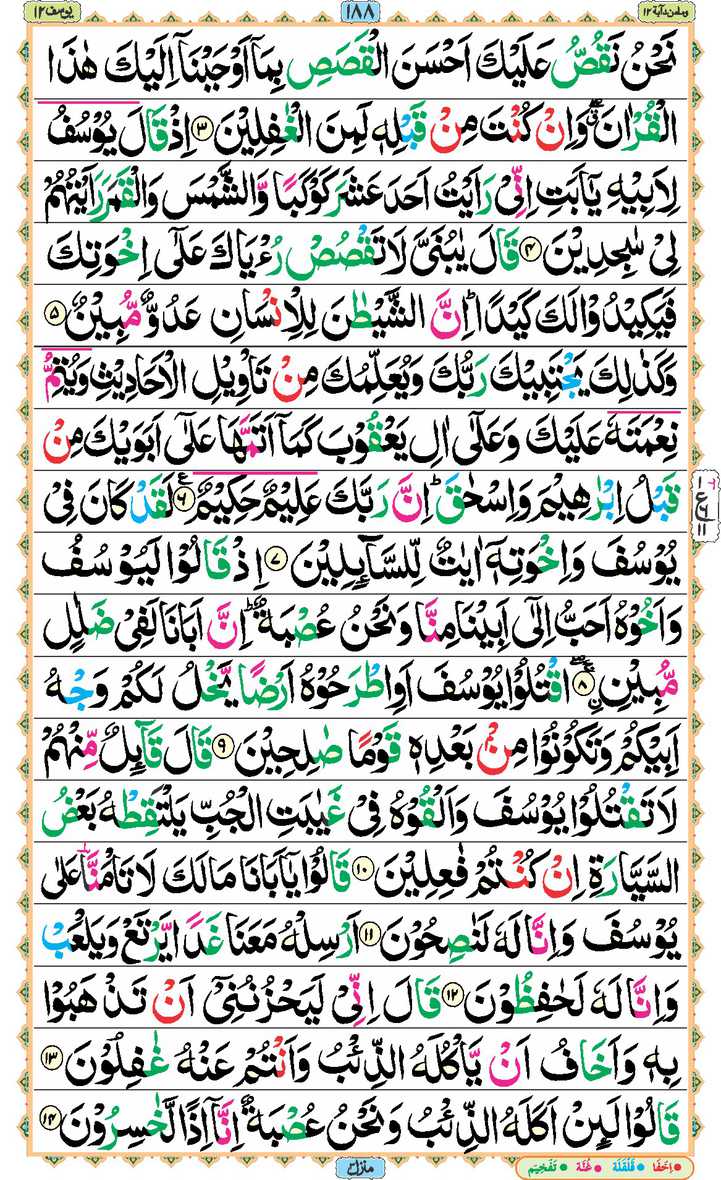 ومامن دآبة ١٢ ١٨٨ يوسف ١٢
نَحْنُ نَقُصُّ عَلَيْكَ اَحْسَنَ الْقَصَصِ بِمَاۤ اَوْحَيْنَاۤ اِلَيْكَ هٰذَا
الْقُرْاٰنَ ۖۗ وَاِنْ كُنْتَ مِنْ قَبْلِهٖ لَمِنَ الْغٰفِلِيْنَ ۝٣ اِذْ قَالَ يُوْسُفُ
لِاَبِيْهِ يٰۤاَبَتِ اِنِّىْ رَاَيْتُ اَحَدَ عَشَرَ كَوْكَبًا وَّالشَّمْسَ وَالْقَمَرَ رَاَيْتُهُمْ
لِىْ سٰجِدِيْنَ ۝٤ قَالَ يٰبُنَىَّ لَا تَقْصُصْ رُءْيَاكَ عَلٰٓى اِخْوَتِكَ
فَيَكِيْدُوْا لَكَ كَيْدًا ؕ اِنَّ الشَّيْطٰنَ لِلْاِنْسَانِ عَدُوٌّ مُّبِيْنٌ ۝٥
وَكَذٰلِكَ يَجْتَبِيْكَ رَبُّكَ وَيُعَلِّمُكَ مِنْ تَاْوِيْلِ الْاَحَادِيْثِ وَيُتِمُّ
نِعْمَتَهٗ عَلَيْكَ وَعَلٰٓى اٰلِ يَعْقُوْبَ كَمَاۤ اَتَمَّهَا عَلٰٓى اَبَوَيْكَ مِنْ
قَبْلُ اِبْرٰهِيْمَ وَاِسْحٰقَ ؕ اِنَّ رَبَّكَ عَلِيْمٌ حَكِيْمٌ ۝٦ لَقَدْ كَانَ فِىْ
يُوْسُفَ وَاِخْوَتِهٖۤ اٰيٰتٌ لِّلسَّآٮِٕلِيْنَ ۝٧ اِذْ قَالُوْا لَيُوْسُفُ
وَاَخُوْهُ اَحَبُّ اِلٰٓى اَبِيْنَا مِنَّا وَنَحْنُ عُصْبَةٌ ؕ اِنَّ اَبَانَا لَفِىْ ضَلٰلٍ
مُّبِيْنٍ ۝٨ اۨقْتُلُوْا يُوْسُفَ اَوِ اطْرَحُوْهُ اَرْضًا يَّخْلُ لَكُمْ وَجْهُ
اَبِيْكُمْ وَتَكُوْنُوْا مِنْۢ بَعْدِهٖ قَوْمًا صٰلِحِيْنَ ۝٩ قَالَ قَآٮِٕلٌ مِّنْهُمْ
لَا تَقْتُلُوْا يُوْسُفَ وَاَلْقُوْهُ فِىْ غَيٰبَتِ الْجُبِّ يَلْتَقِطْهُ بَعْضُ
السَّيَّارَةِ اِنْ كُنْتُمْ فٰعِلِيْنَ ۝١٠ قَالُوْا يٰۤاَبَانَا مَا لَكَ لَا تَاْمَنَّا عَلٰى
يُوْسُفَ وَاِنَّا لَهٗ لَنٰصِحُوْنَ ۝١١ اَرْسِلْهُ مَعَنَا غَدًا يَّرْتَعْ وَيَلْعَبْ
وَاِنَّا لَهٗ لَحٰفِظُوْنَ ۝١٢ قَالَ اِنِّىْ لَيَحْزُنُنِىْۤ اَنْ تَذْهَبُوْا
بِهٖ وَاَخَافُ اَنْ يَّاْكُلَهُ الذِّئْبُ وَاَنْتُمْ عَنْهُ غٰفِلُوْنَ ۝١٣
قَالُوْا لَٮِٕنْ اَكَلَهُ الذِّئْبُ وَنَحْنُ عُصْبَةٌ اِنَّاۤ اِذًا لَّخٰسِرُوْنَ ۝١٤
منزل ٣ اِخْفَا قَلْقَلَة غُنَّة تَفْخِيْم